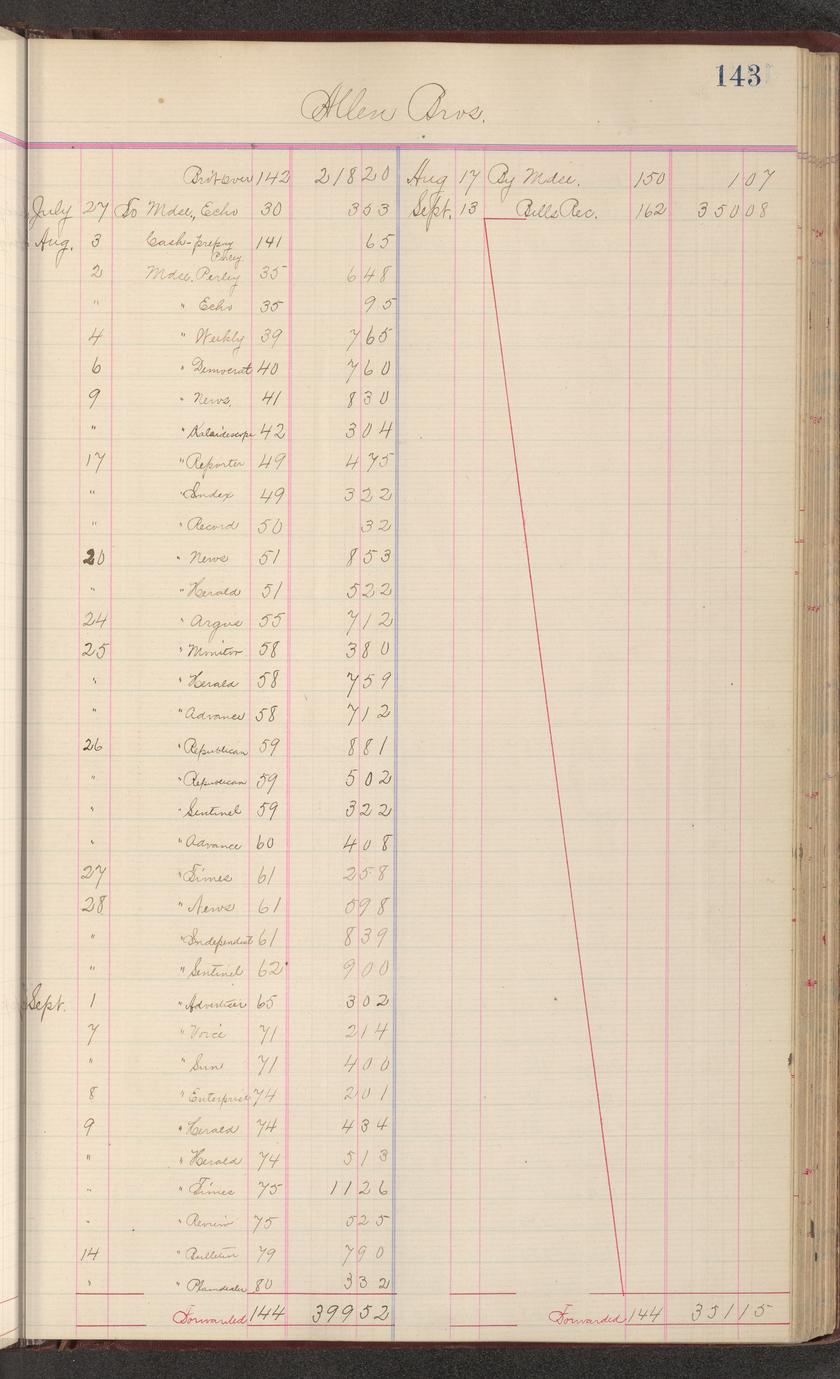 143
Allen Bros.
Bro't over 142 218 20
July 27 To Mdse, Echo 30 3 53
Aug. 3 Cash - prepay Perley 141 65
2 Mdse, Perley 35 6 48
" " Echo 35 95
4 " Weekly 39 7 65
6 " Democrat 40 7 60
9 " News, 41 8 30
" " Kaleidescope 42 3 04
17 " Reporter 49 4 75
" " Index 49 3 22
" " Record 50 32
20 " News 51 8 53
" " Herald 51 5 22
24 " Argus 55 7 12
25 " Monitor 58 3 80
" " Herald 58 7 59
" " Advance 58 7 12
26 " Republican 59 8 81
" " Republican 59 5 02
" " Sentinel 59 3 22
" " Advance 60 4 08
27 " Times 61 2 58
28 " News 61 5 98
" " Independent 61 8 39
" " Sentinel 62 9 00
Sept. 1 " Advertiser 65 3 02
7 " Voice 71 2 14
" " Sun 71 4 00
8 " Enterprise 74 2 01
9 " Herald 74 4 34
" " Herald 74 5 13
" " Times 75 11 26
" " Review 75 5 25
14 " Bulletin 79 7 90
" " Plaindealer 80 3 32
Forwarded 144 399 52
Aug 17 By Mdse. 150 1 07
Sept. 13 Bills Rec. 162 350 08
Forwarded 144 351 15